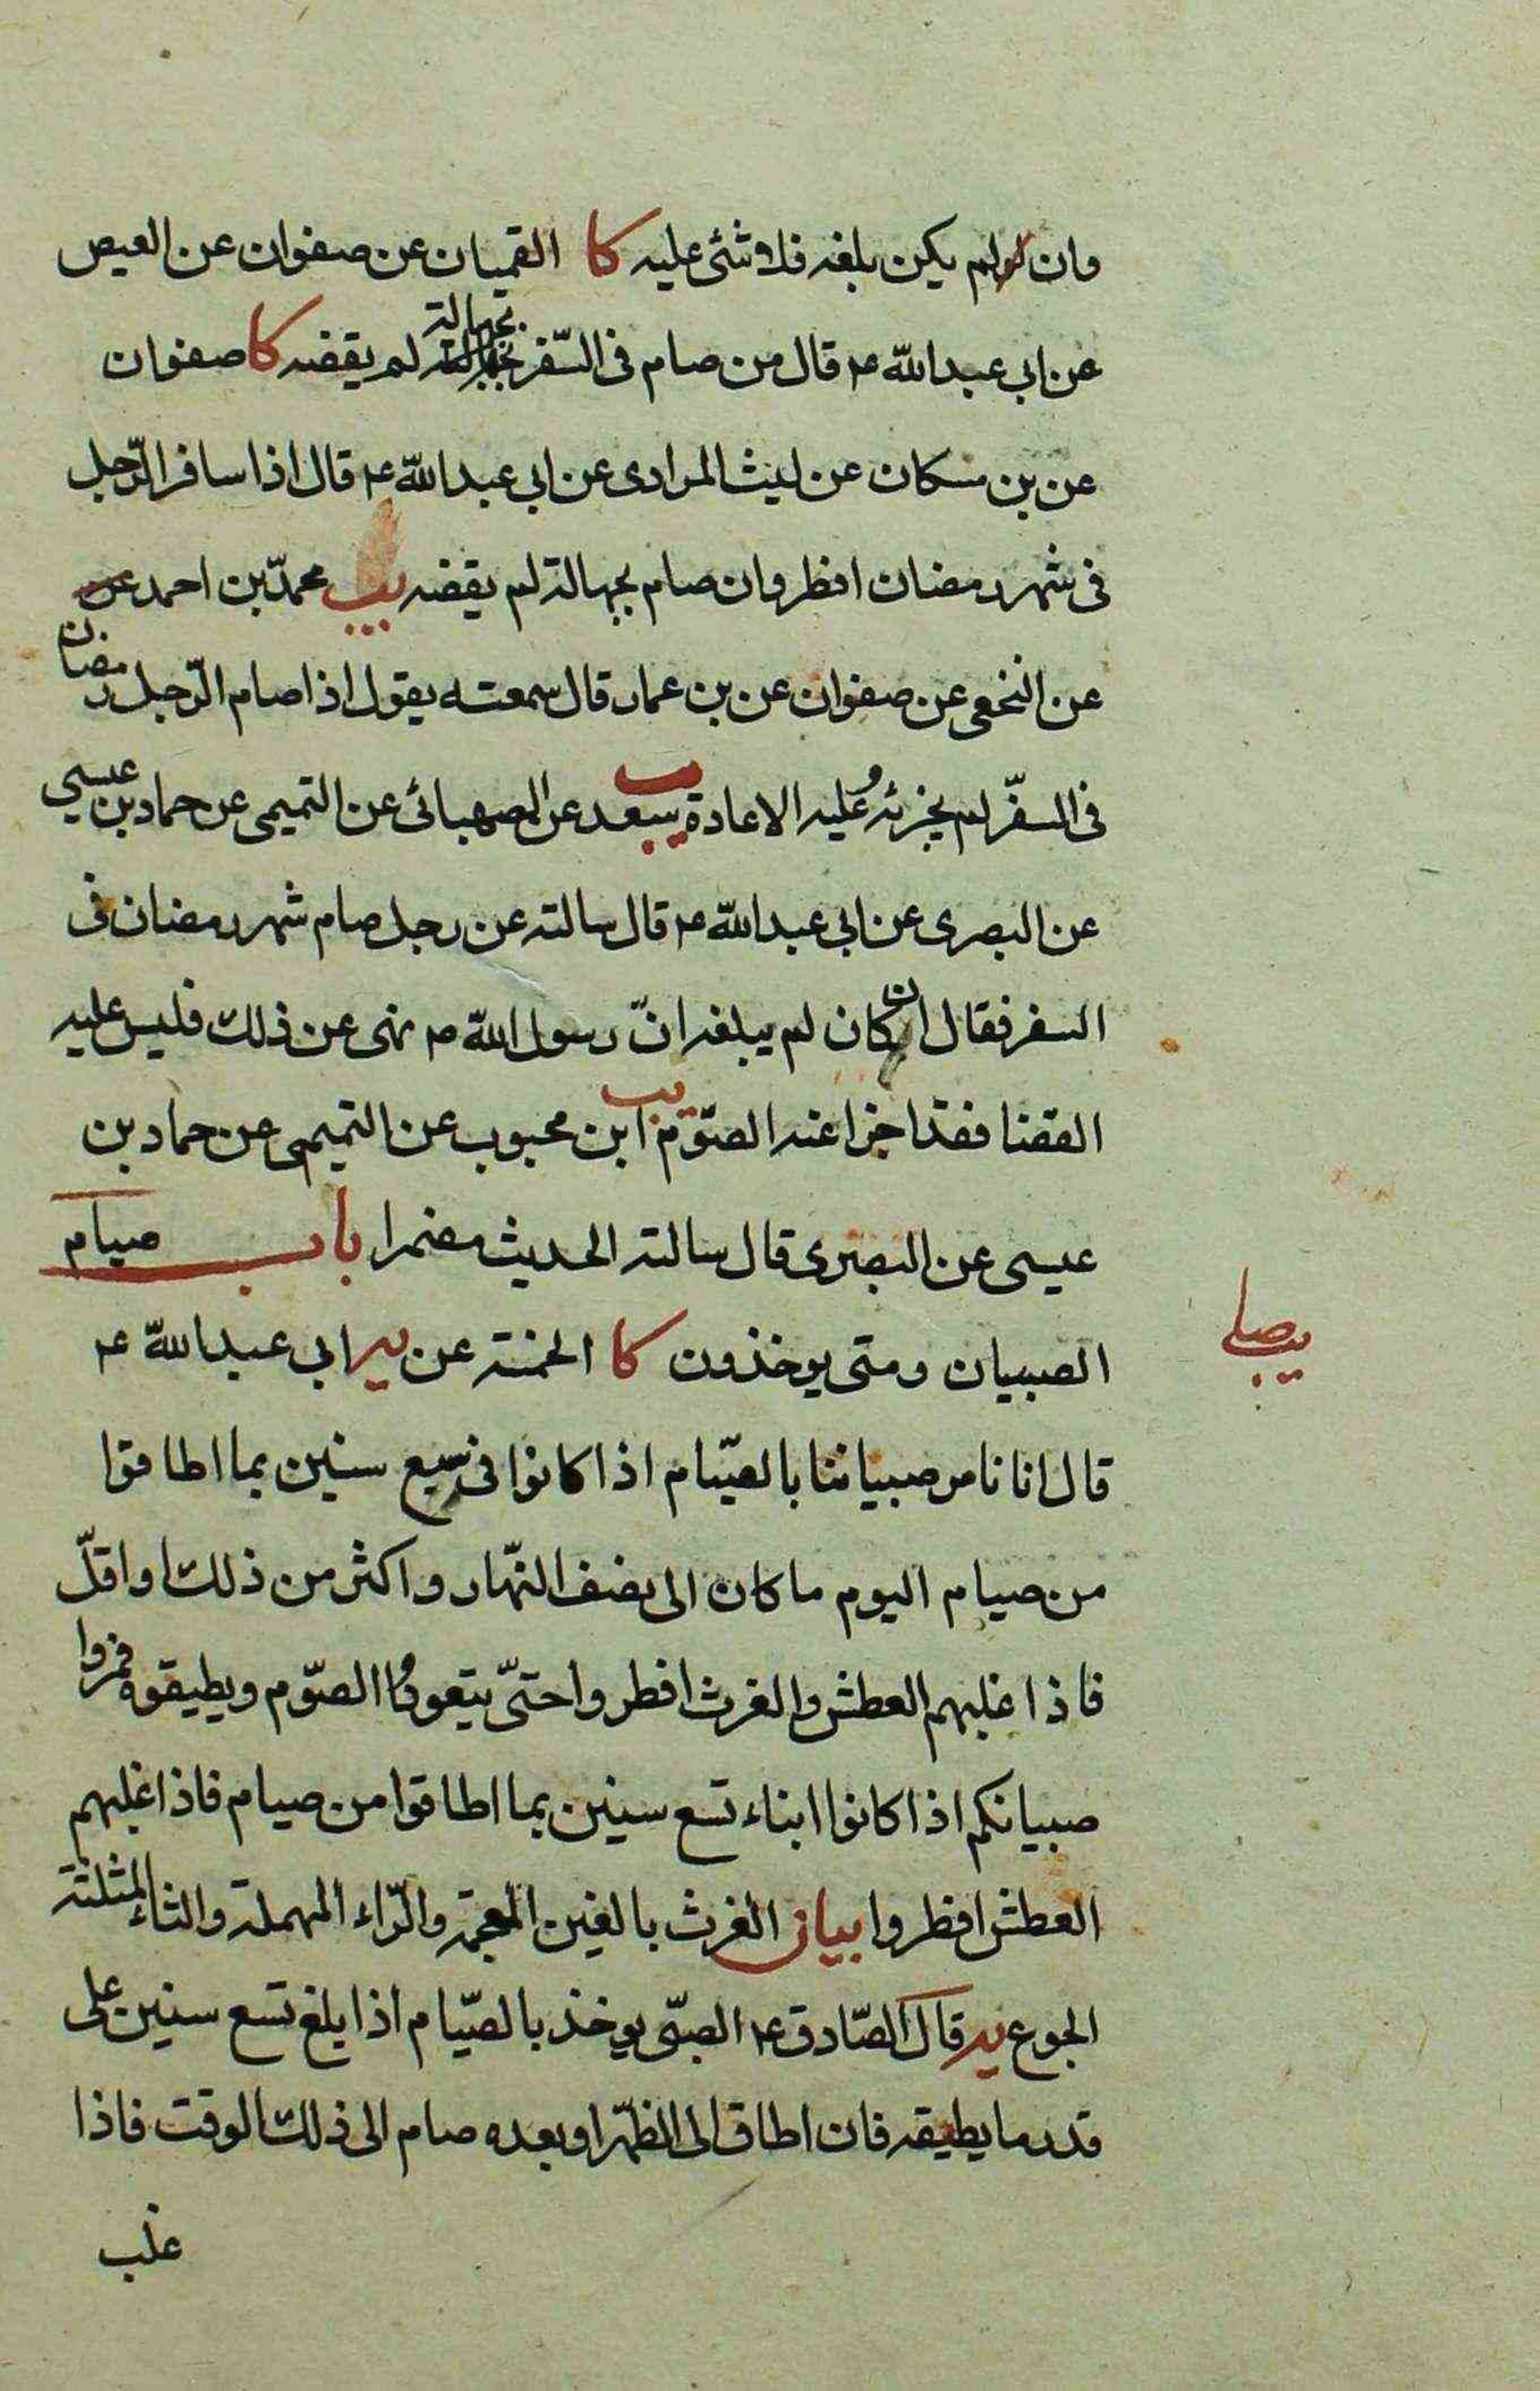 وان لم يكن بلغه فلا شئ عليه كا القميان عن صفوان عن العيص
عن ابي عبد الله ع قال من صام في السّفر بجهالة لم يقضه كا صفوان
عن بن مسكان عن ليث المرادى عن ابي عبد الله ع قال اذا سافر الرّجل
فى شهر رمضان افطر وان صام بجهالة لم يقضه يب محمدّ بن احمد
عن النخعى عن صفوان عن بن عمار قال سمعته يقول اذا صام الرّجل رمضان
فى السفّر لم يجزئه وعليه الاعادة يب سعد عن الصهبائى عن التميمى عن حماد بن عيسي
عن البصرى عن ابي عبد الله ع قال سالته عن رجل صام شهر رمضان فى
السفر فقال ان كان لم يبلغه انّ رسول الله ص نهى عن ذلك فليس عليه
القضا فقد اجزا عنه الصّوم يب ابن محبوب عن التميمى عن حماد بن
عيسى عن البصرى قال سالته الحديث مضمرا باب صيام
الصبيان ومتى يوخذون كا الخمسة عن ابي عبد الله ع
يصلي
قال انا نامر صبياننا بالصّيام اذا كانوا فى سبع سنين بما اطاقوا
من صيام اليوم ما كان الى نصف النّهار واكثر من ذلك او اقلّ
فاذا غلبهم العطش والغرث افطروا حتىّ يتعودّوا الصّوم ويطيقوه فمروا
صبيانكم اذا كانوا ابناء تسع سنين بما اطاقوا من صيام فاذا غلبهم
العطش افطروا بيان الغرث بالغين المعجمة والرّاء المهملة والثاء المثلثة
الجوع يه قال الصّادق ع الصبّى يوخذ بالصّيام اذا بلغ تسع سنين على
قدر ما يطيقه فان اطاق الى الظهر او بعده صام الى ذلك الوقت فاذا
غلب